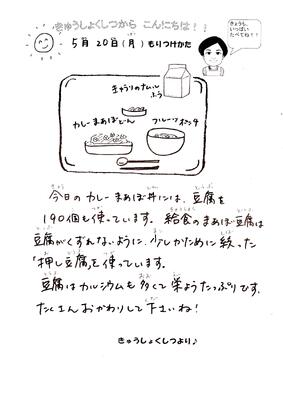 きゅうしょくしつから こんにちは!!
きょうも、
いっぱい
たべてね!!
5月20日(月) もりつけかた
きゅうりのナムル
ふう
カレーまあぼどん
フルーツポンチ
今日のカレーまあぼ丼には、豆腐を
190個も使っています。給食のまあぼ豆腐は
豆腐がくずれないように、少しかために絞った
「押し豆腐」を使っています。
豆腐はカルシウムも多くて栄ようたっぷりです。
たくさんおかわりして下さいね!
きゅうしょくしつより♪